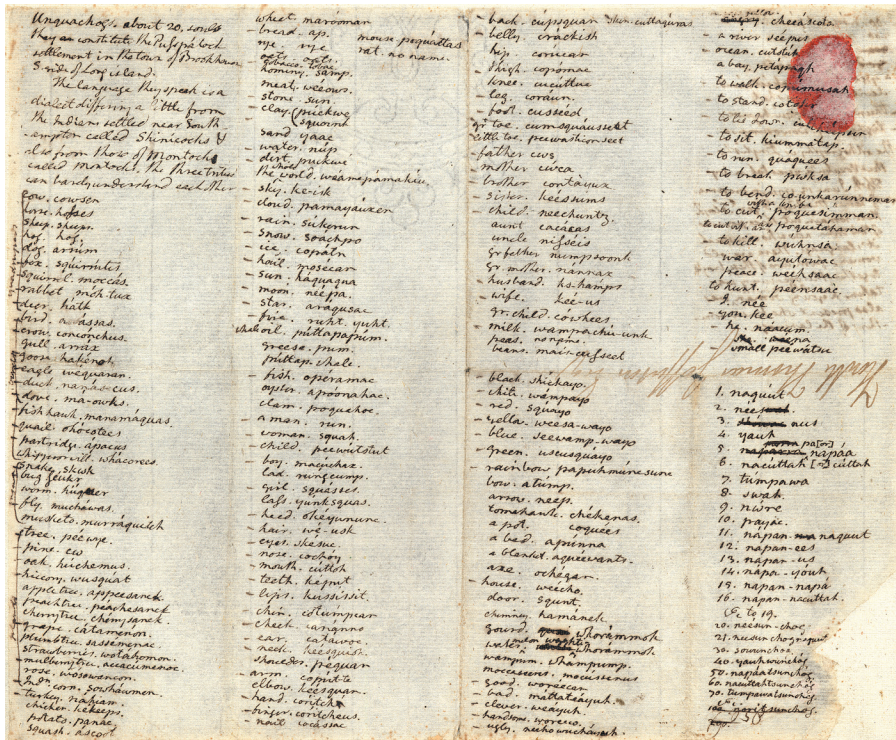 Unquachogs. about 20. souls
they constitute the Puspátock
settlement in the town of Brookhaven
S. side of Long island.
The language they speak is a
dialect differing a little from
the Indians settled near South
ampton called Shinicocks &
also from those of Montock
called montocks. the three tribes
can barely understand each other
cow. cowsen
horse. hosses
sheep. sheeps.
hog. hog
dog. arrúm
fox. squírrútes
squirrel. moccás.
rabbet. móh-tux
deer. hátk
bird. awássas.
crow. conconchus.
gull. arrax
goose. hakénah
eagle. wéquaran.
duck. nanasecus.
dove. ma-owks.
fishhawk. manamáquas.
quail. ohócotees
partridge. ápacus
whippoorwill. whácorees.
snake. skwk
bug
worm. húquer
fly. muchawas.
musketo. murráquitch
tree. péewye.
pine. cw
oak. húchemus.
hiccory. wusquát
appletree. appeesanck
peachtree. peachesanck
cherrytree. chérrysanck
grape. cátamenon.
plumbtree. sassemenac
strawberries. wotáhomon.
mulberrytree.
rose. wosowancon.
Indn corn. sowháwmen.
turkey. nahiam.
chicken. kekeeps.
potato. panac.
squash. ascoot
wheat. maróomar
bread. ap.
rye. rye
oats. oats.
tobacco. tobac
hominy. samp.
meat. weeows.
stone. sun.
clay. puckwe
squoint
sand yaac
water. núp
dirt. puckwe
the whole world. wéame pamakíu.
sky. ke-isk
cloud. pamayáuxen
rain. súkerun
snow. soáchpo
ice. copátn
hail. mosécar
sun. háquaqua
moon. néepa.
star. araqusac
fire. ruht. yuht.
whale oil. púttapapúm.
greese. pum.
púttap. whale.
fish. opéramac
oyster. apoonahac.
clam. poquahoc.
a man. run.
woman. squah.
child. peewútstut
boy. macuchax.
lad. rungcump.
girl. squásses.
lass. yunksquas.
head. okeyununc.
hair. wé-usk
eyes. skésuc.
nose. cochóy
mouth. cúttoh
teeth. képut
lips. kussissit.
chin. cotumpcar
cheek. canánno
ear. catawoc.
neck. keesquish.
shoulder. péquan
arm. coppítte
elbow. keesquan.
hand. corítche
finger. coritcheus.
nail cocássac
mouse poquáttas
rat. no name.
back. cúpsquan skin. cuttaquras
belly. crackish
hip. corícar
thigh. copómac
knee. cucúttuc
leg. coráun.
foot. cusseed.
gr toe. cumsquausseet
little toe. peewasticonseet
father cws
mother cwca
brother contàyux
sister. keessums
child. neechuntz.
aunt cacácas
uncle nisséis
gr. father numpsoonk
gr. mother. nannax
husband. ks-hamps
wife. kee-us
gr. child. cówhees
milk. wampachú-unk
peas.
beans. mais-cusseet
black. shickayo.
white. wampayo
red. squáyo
yellow. weesa-wayo
blue. seewamp-wayo
green. uscusquayo
rainbow papuhmúncsunc
bow. atump.
arrow. neep.
tomahawk. chékenas.
a pot. coquées
a bed. apúnna
a blanket. aquéewants.
axe. ochegar.
house. weecho.
door. squnt.
chimney hamánek
gourd. whorámmok
water melon whorámmok
wampum. whámpump.
moccasens. mocussenus
good. woréecar
bad. mattateáyuh
clever. weáyuh.
handsome. woréeco
ugly. neehowucháyuh.
cheeáscota.
a river seépus
ocean. cutstúk
a bay. petápagh
to walk. copúmusah
to stand.
to lie down.
to sit. kiummatap.
to run. quaquees
to break pwksa
to bend. co-unkarúnneman
to cut with a knife. poquesimman.
to cut with an axe poquetáhaman
to kill. wúhnsa
war. ayutowac
peace. weehsaac
to hunt. péensaac.
I. née
you. kee
he. naacum.
small peewátsu
1. naquut
2. nees
3. nus
4. yauh
5. napáá pa [or]
6. nacúttah [or] cúttah
7. túmpawa
8. swah
9. níwre
10. payác.
11. napan naqut
12. napan-ees
13. napan-us
14. napa-youh
15. napan-napá
16. napan-nacuttah
&c to 19.
20. neesun-chog
21. neesunchognaquut
30. sowunchog
40. yauhwunchóg
50. napáatsunchóg
60. nacuttahtsunchóg
70. tumpawatsunchóg.
&c